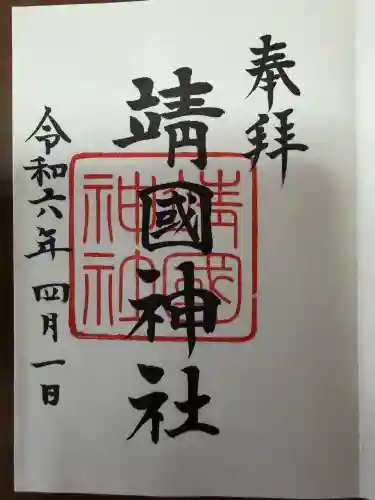 奉拝
靖國神社
靖國
神社
令和六年四月一日